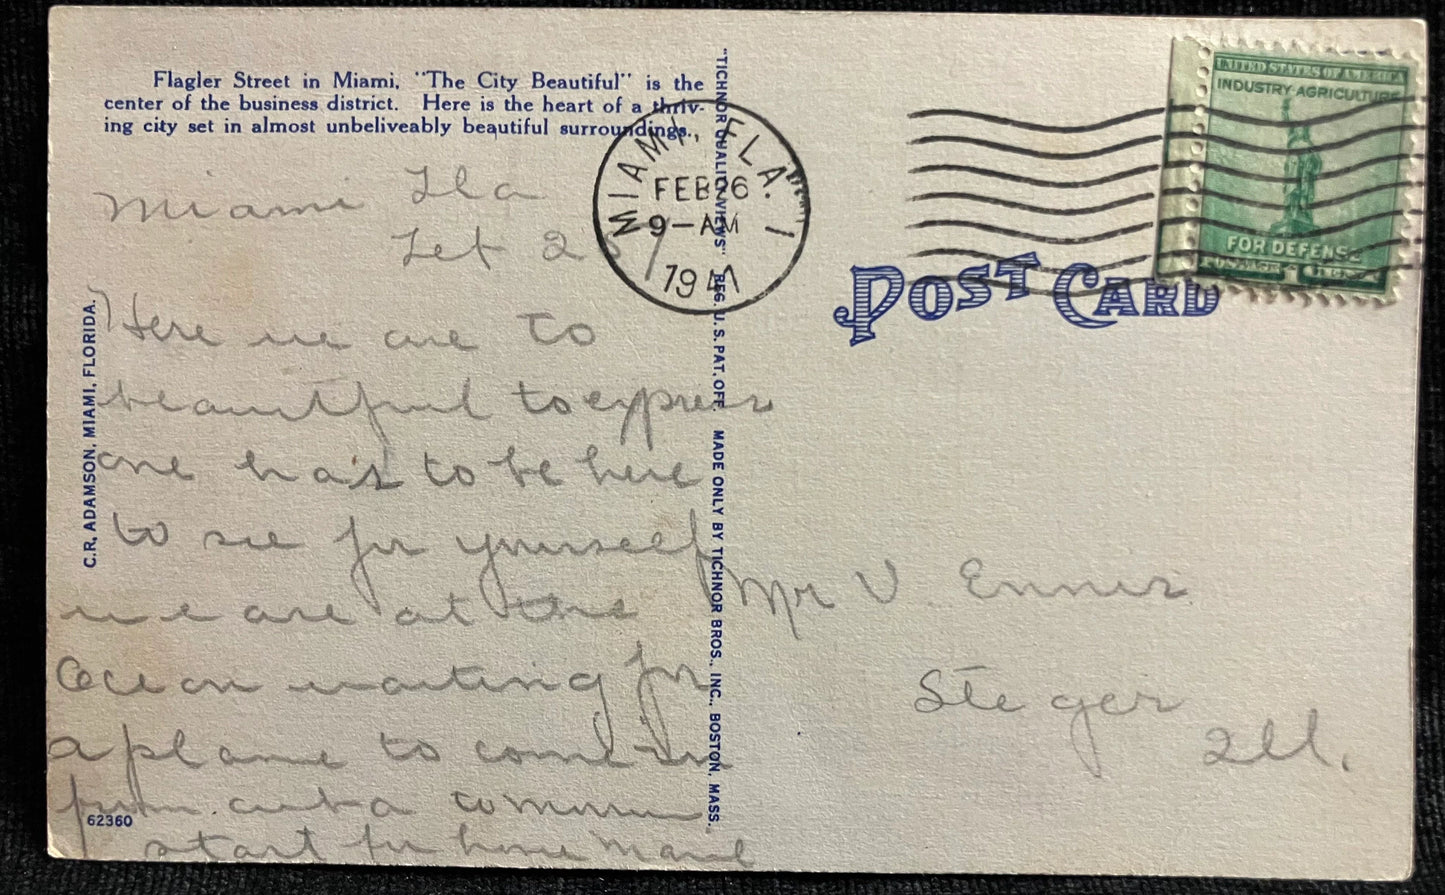 Flagler Street in Miami, "The City Beautiful" is the
center of the business district. Here is the heart of a thriv-
ing city set in almost unbeliveably beautiful surroundings.,
Miami Fla
Feb 25
Here we are to
beautiful to express
one has to be here
to see for yourself
we are at the
Ocean waiting for
a plane to come in
from cuba tomorrow
start for home
C.R. ADAMSON, MIAMI, FLORIDA.
62360
"TICHNOR QUALITY VIEWS" REG. U.S. PAT. OFF. MADE ONLY BY TICHNOR BROS., INC., BOSTON, MASS.
MIAMI, FLA. 1
FEB 26
9-AM
1941
UNITED STATES OF AMERICA
INDUSTRY AGRICULTURE
FOR DEFENSE
POST CARD
Mr V. Ennis
Steger
Ill.